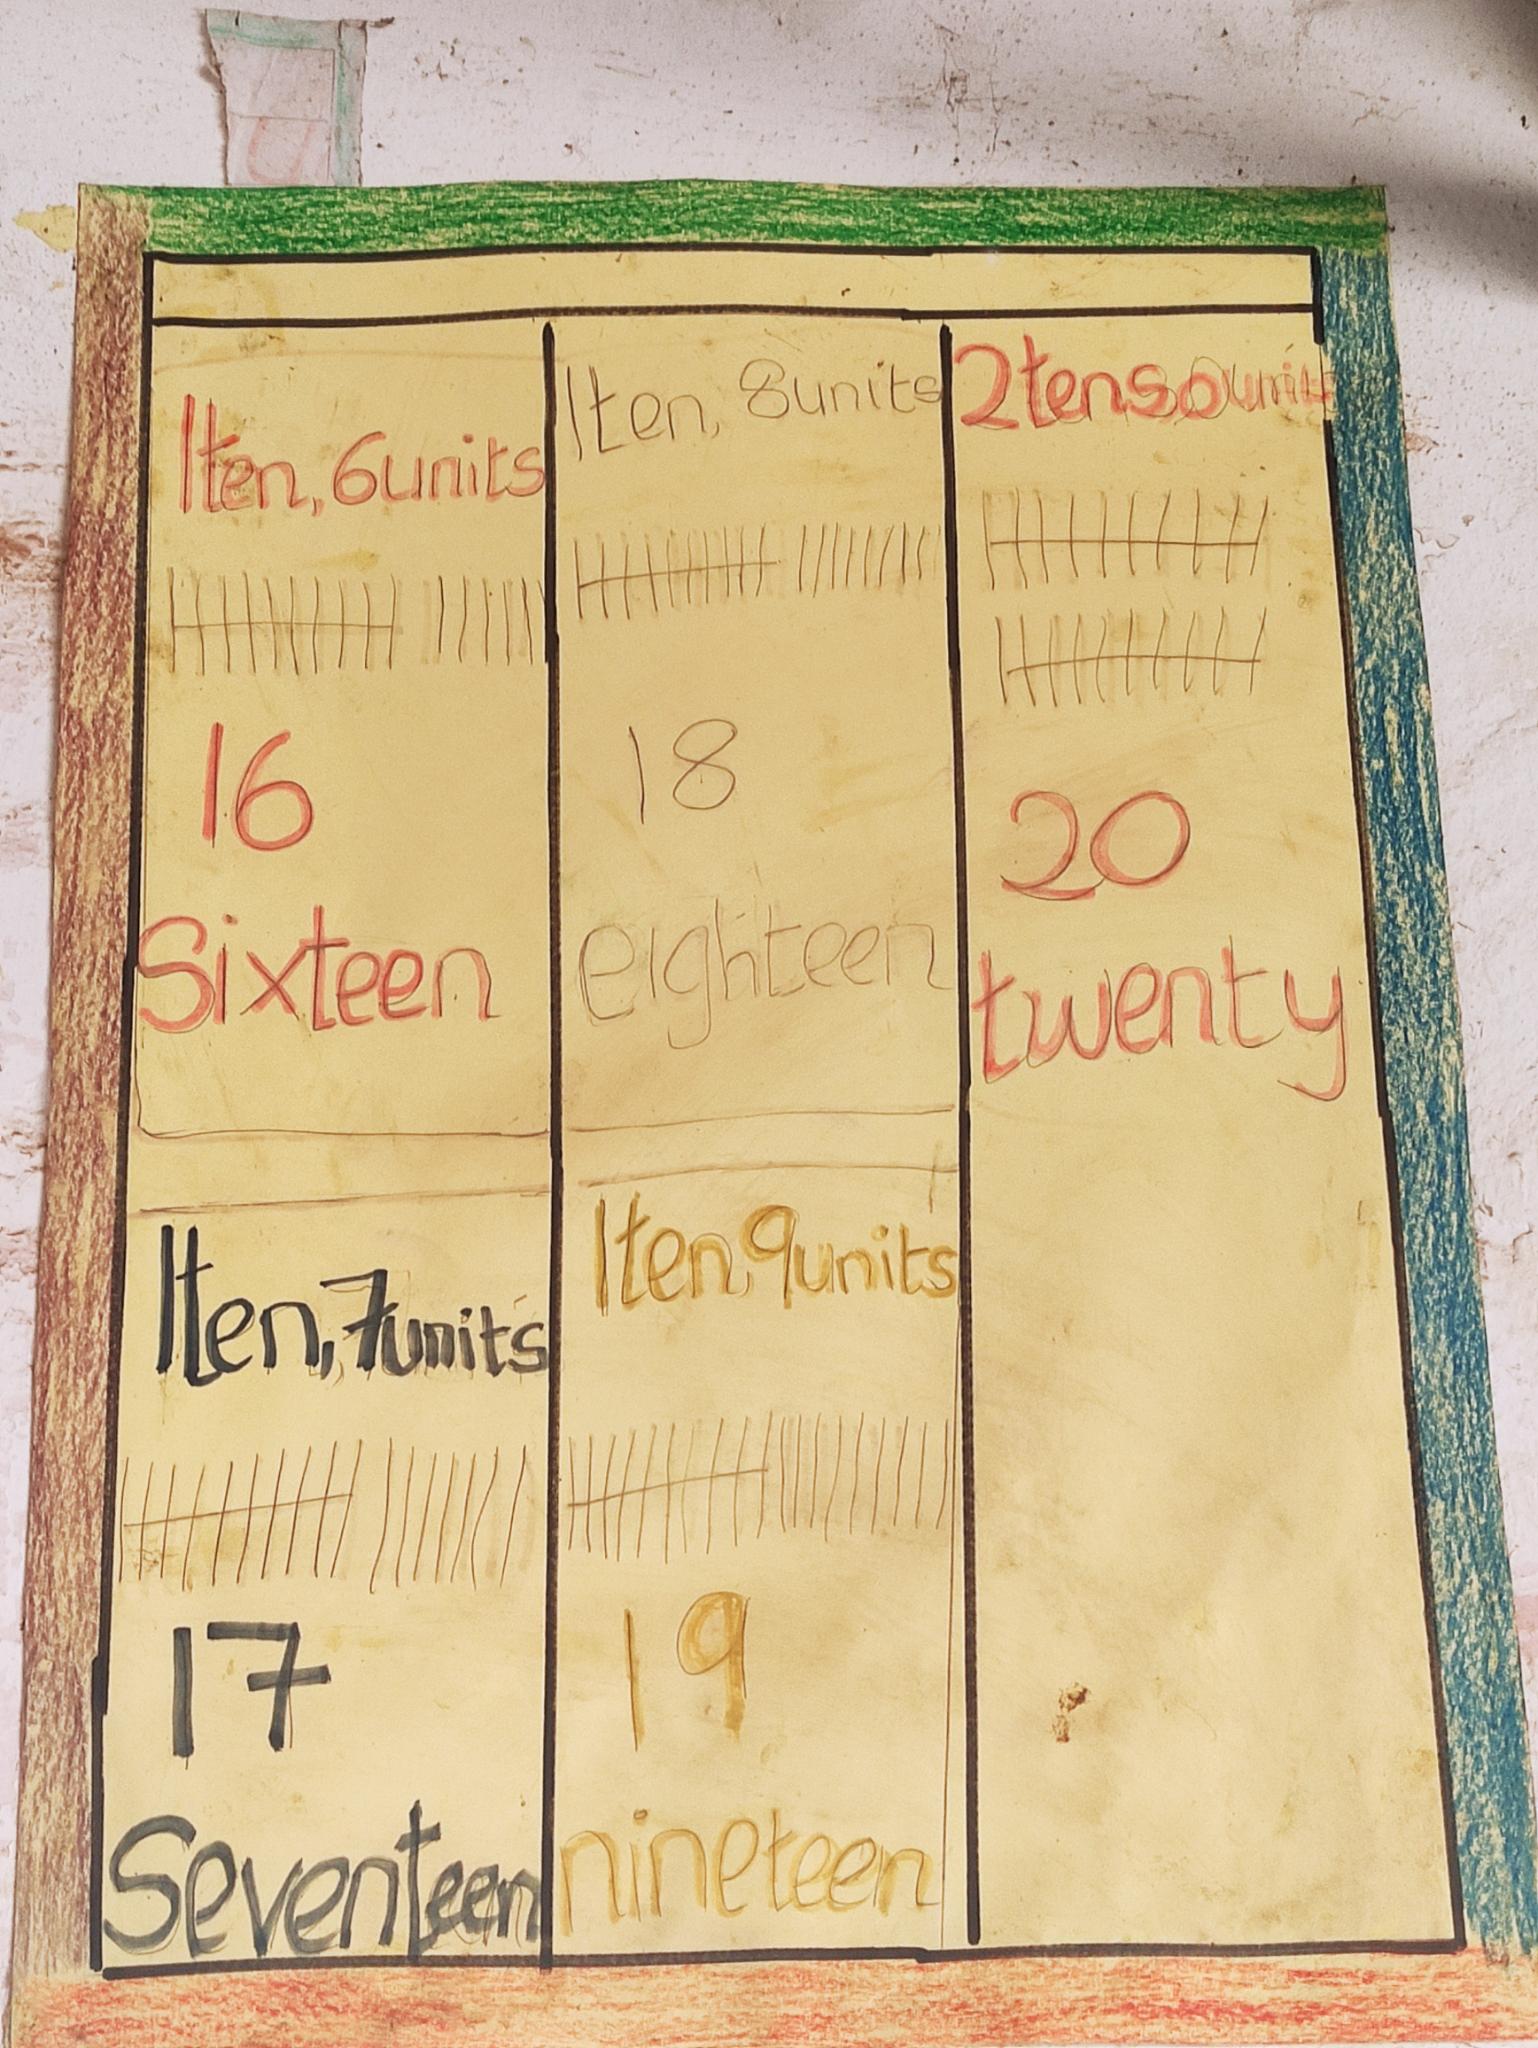 1ten, 6units
16
Sixteen
1ten, 7units
17
Seventeen
1ten, 8units
18
eighteen
1ten, 9units
19
nineteen
2tens, 0units
20
twenty